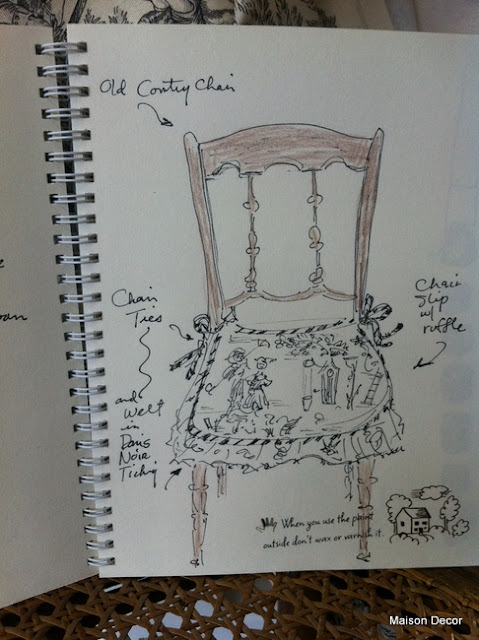 Old Contry Chair
Chair
Ties
and
Welt
in
Paris
Noir
Ticking
Chair
Slip
w/
ruffle
When you use the paint
outside don't wax or varnish it.
Maison Decor